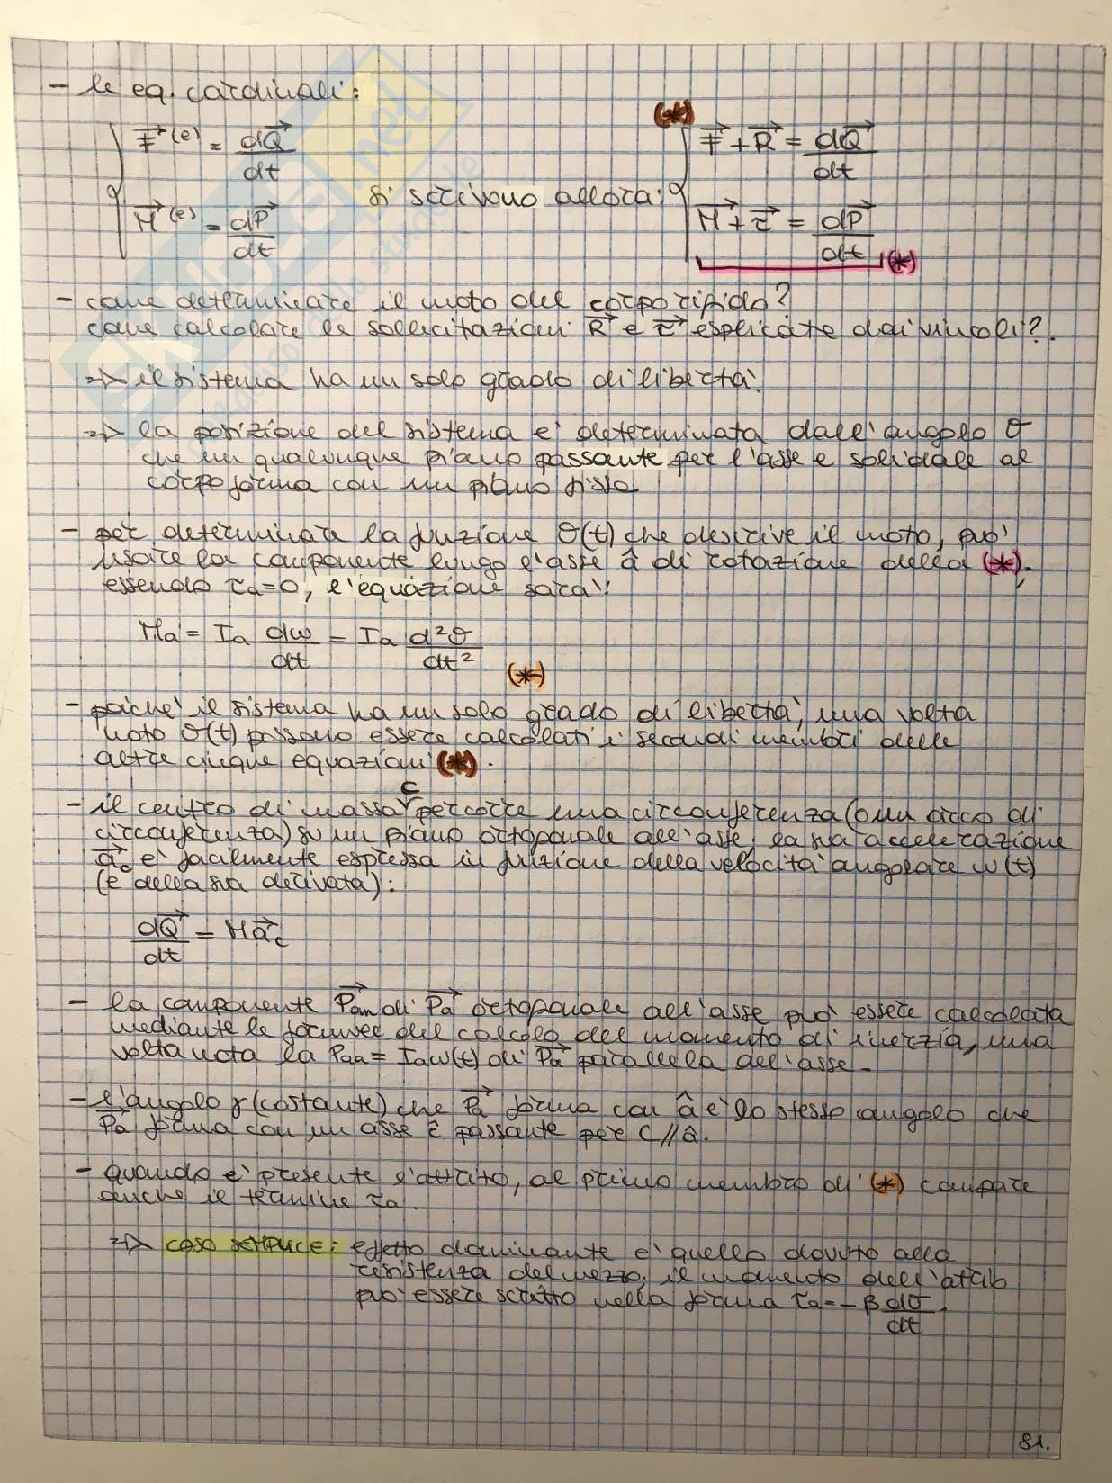 - le eq. cardinali:
F⃗^(e) = dQ⃗/dt
M⃗^(e) = dP⃗/dt
si scrivono allora:
(*) F⃗ + R⃗ = dQ⃗/dt
M⃗ + τ⃗ = dP⃗/dt (*)
- come determinare il moto del corpo rigido?
come calcolare le sollecitazioni R⃗ e τ⃗ esplicate dai vincoli?
=> il sistema ha un solo grado di libertà:
=> la posizione del sistema e' determinata dall'angolo θ
che un qualunque piano passante per l'asse e solidale al
corpo forma con un piano fisso
- per determinare la funzione θ(t) che descrive il moto, può
usare la componente lungo l'asse â di rotazione della (*);
essendo τa=0, l'equazione sarà:
Ma = Ia dω/dt = Ia d²θ/dt²
(*)
- poiché il sistema ha un solo grado di libertà, una volta
noto θ(t) possono essere calcolati i secondi membri delle
altre cinque equazioni (*).
- il centro di massa C percorre una circonferenza (o un arco di
circonferenza) su un piano ortogonale all'asse, la sua accelerazione
a⃗c e' facilmente espressa in funzione della velocità angolare ω(t)
(e della sua derivata):
dQ⃗/dt = Ma⃗c
- la componente P⃗an di P⃗a ortogonale all'asse può essere calcolata
mediante le formule del calcolo del momento di inerzia, una
volta nota la Paa = Iaω(t) di P⃗a parallela all'asse.
- l'angolo γ (costante) che P⃗a forma con â e' lo stesso angolo che
P⃗a forma con un asse z passante per C//â.
- quando e' presente l'attrito, al primo membro di (*) compare
anche il termine τa.
=> CASO SEMPLICE: effetto dominante e' quello dovuto alla
resistenza del mezzo, il momento dell'attrito
può essere scritto nella forma τa = -β dθ/dt.
81.